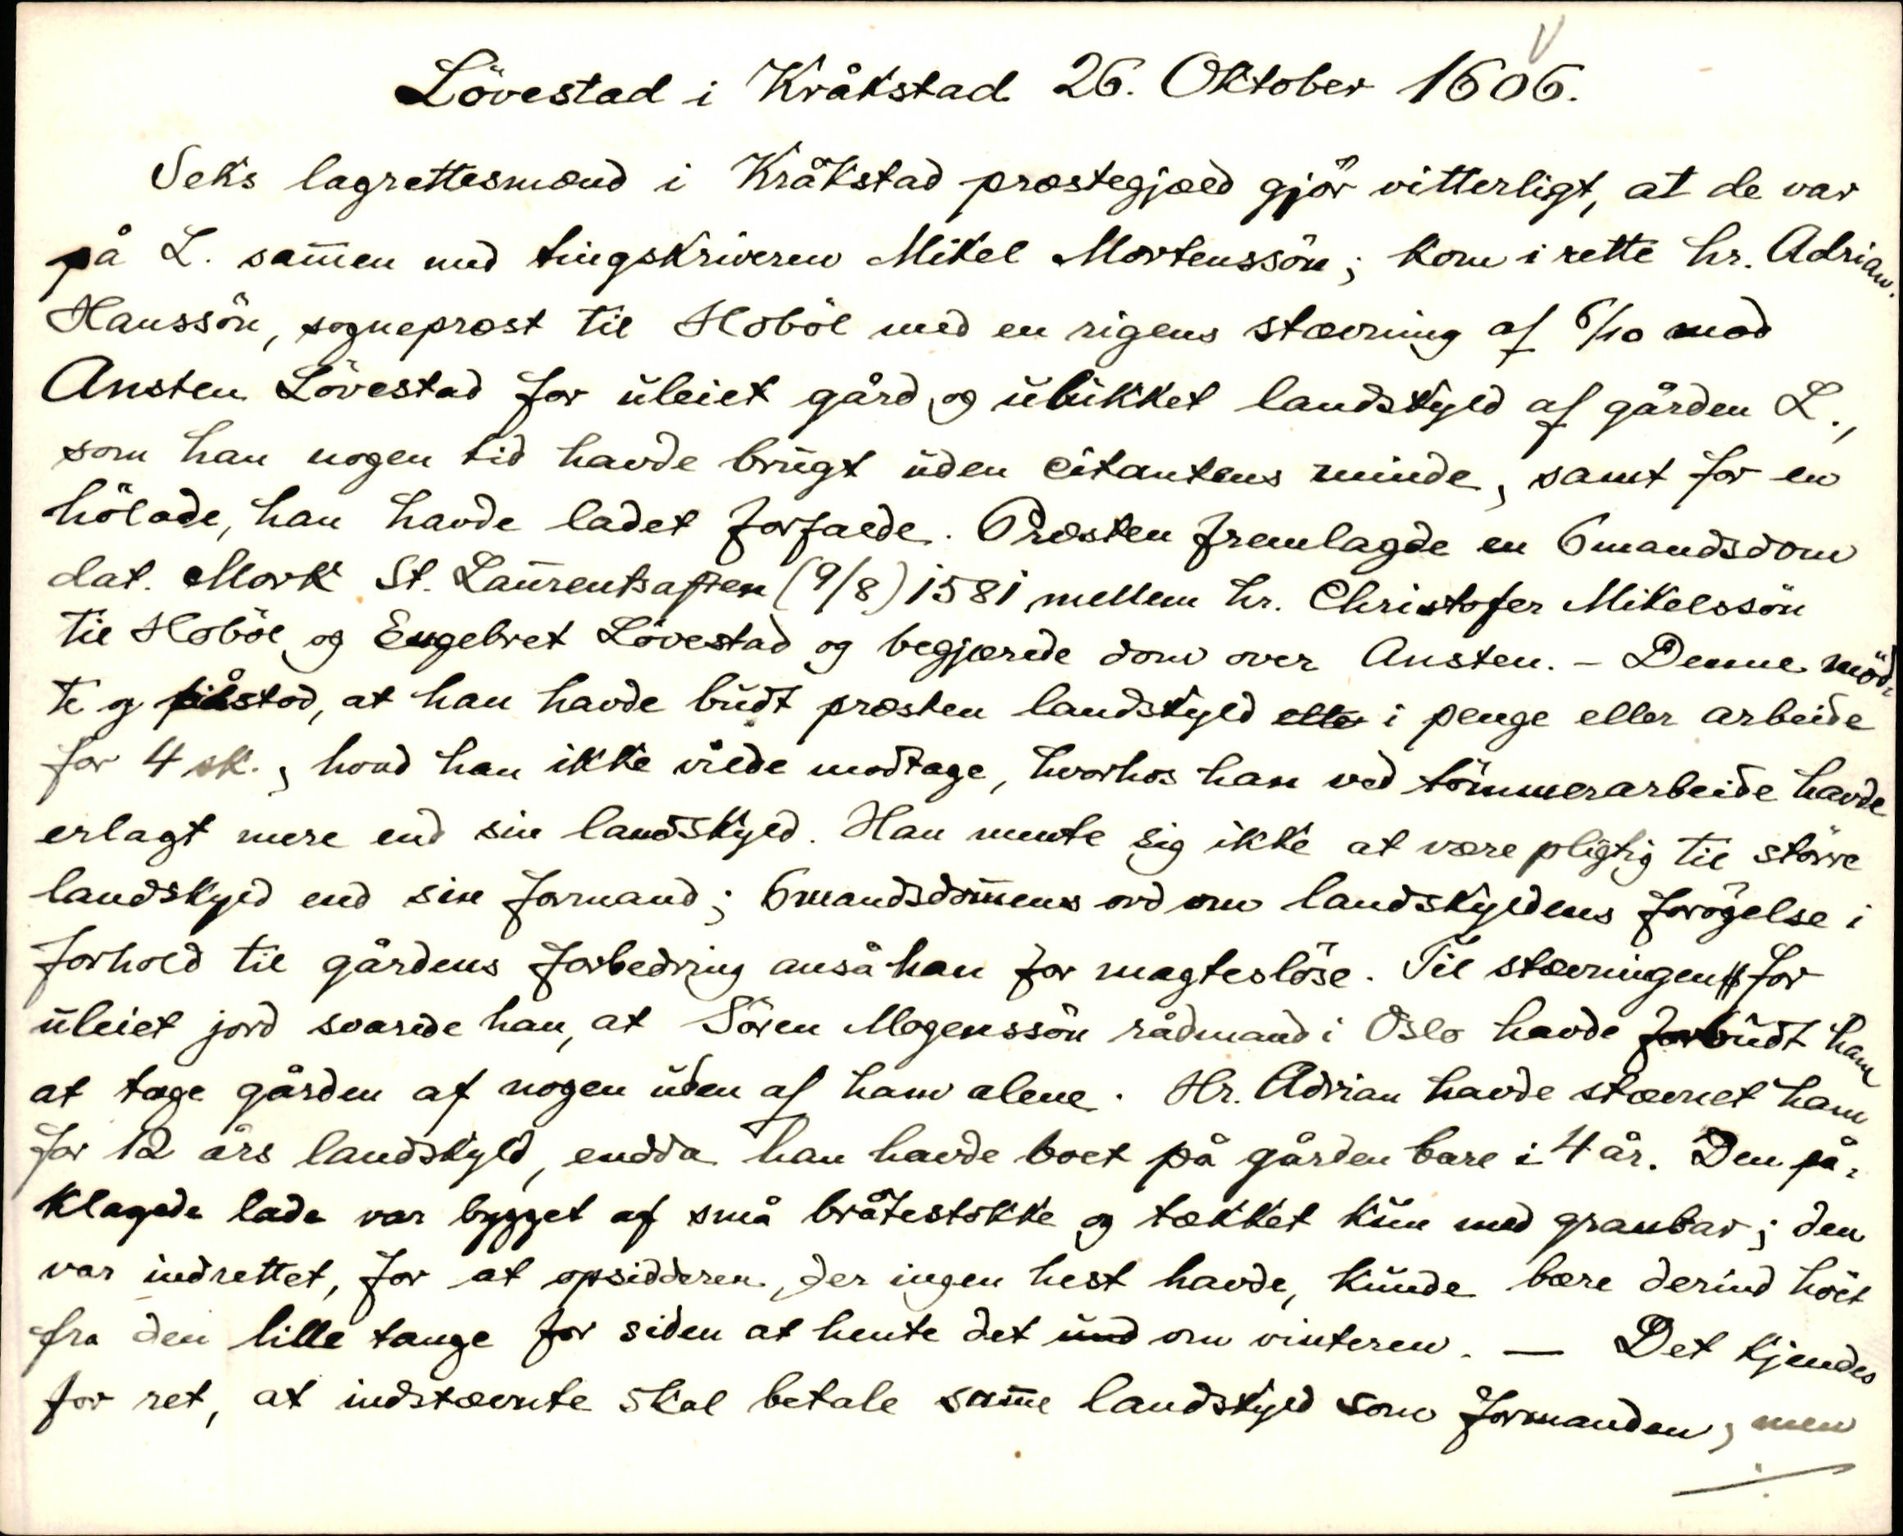 Lövestad i Kråkstad 26. Oktober 1606.
Seks lagrettesmænd i Kråkstad præstegjæld gjör vitterligt, at de var
på L. sam̄en med tingskriveren Mikel Mortenssön; kom i rette hr. Adrian
Hanssön, sogneprest til Haaböl med en rigens stævning af 6/10 mod
Ansten Lövestad for uleiet gård og ubukket landskyld af gården L.,
som han nogen tid havde brugt uden citantens minde, samt for en
hölade, han havde ladet forfalde. Præsten fremlagde en 6mandsdom
dat. Mork St. Laurentsaften (9/8) 1581 mellem hr. Christofer Mikelssön
til Hoböl og Engebret Lövestad og begjærede dom over Ansten. - Denne möd-
te og påstod, at han havde budt præsten landskyld eller i penge eller arbeide
for 4 sk., hvad han ikke vilde modtage, hvorhos han ved tömmerarbeide havde
erlagt mere end sin landskyld. Han mente sig ikke at være pligtig til större
landskyld end sin formand; 6mandsdom̄ens ord om landskyldens forögelse i
forhold til gårdens forbedring anså han for magteslöse. Til stævningen for
uleiet jord svarede han, at Sören Mogenssön rådmand i Oslo havde forbudt ham
at tage gården af nogen uden af ham alene. Hr. Adrian havde stævnet ham
for 12 års landskyld, endda han havde boet på gården bare i 4 år. Den på-
klagede lade var bygget af små bråtestokke og tækket kun med granbar; den
var indrettet, for at opsidderen, der ingen hest havde, kunde bære derind höet
fra den lille tange for siden at hente det und om vinteren. — Det kjendes
for ret, at indstævnte skal betale sam̄e landskyld som formanden, men